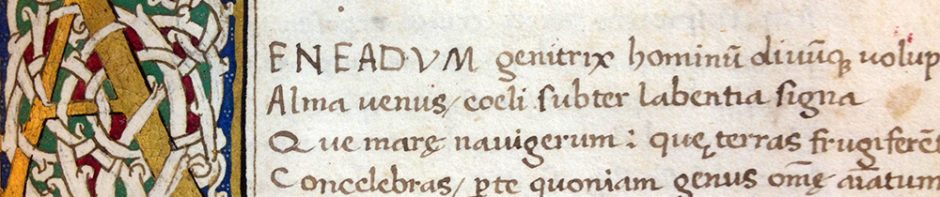 AENEADVM genitrix hominū diuūq; uolup
Alma uenus / coeli subter labentia signa
Que marę nauigerum : quę terras frugiferēt
Concelebras / ꝑ te quoniam genus omę aīatum